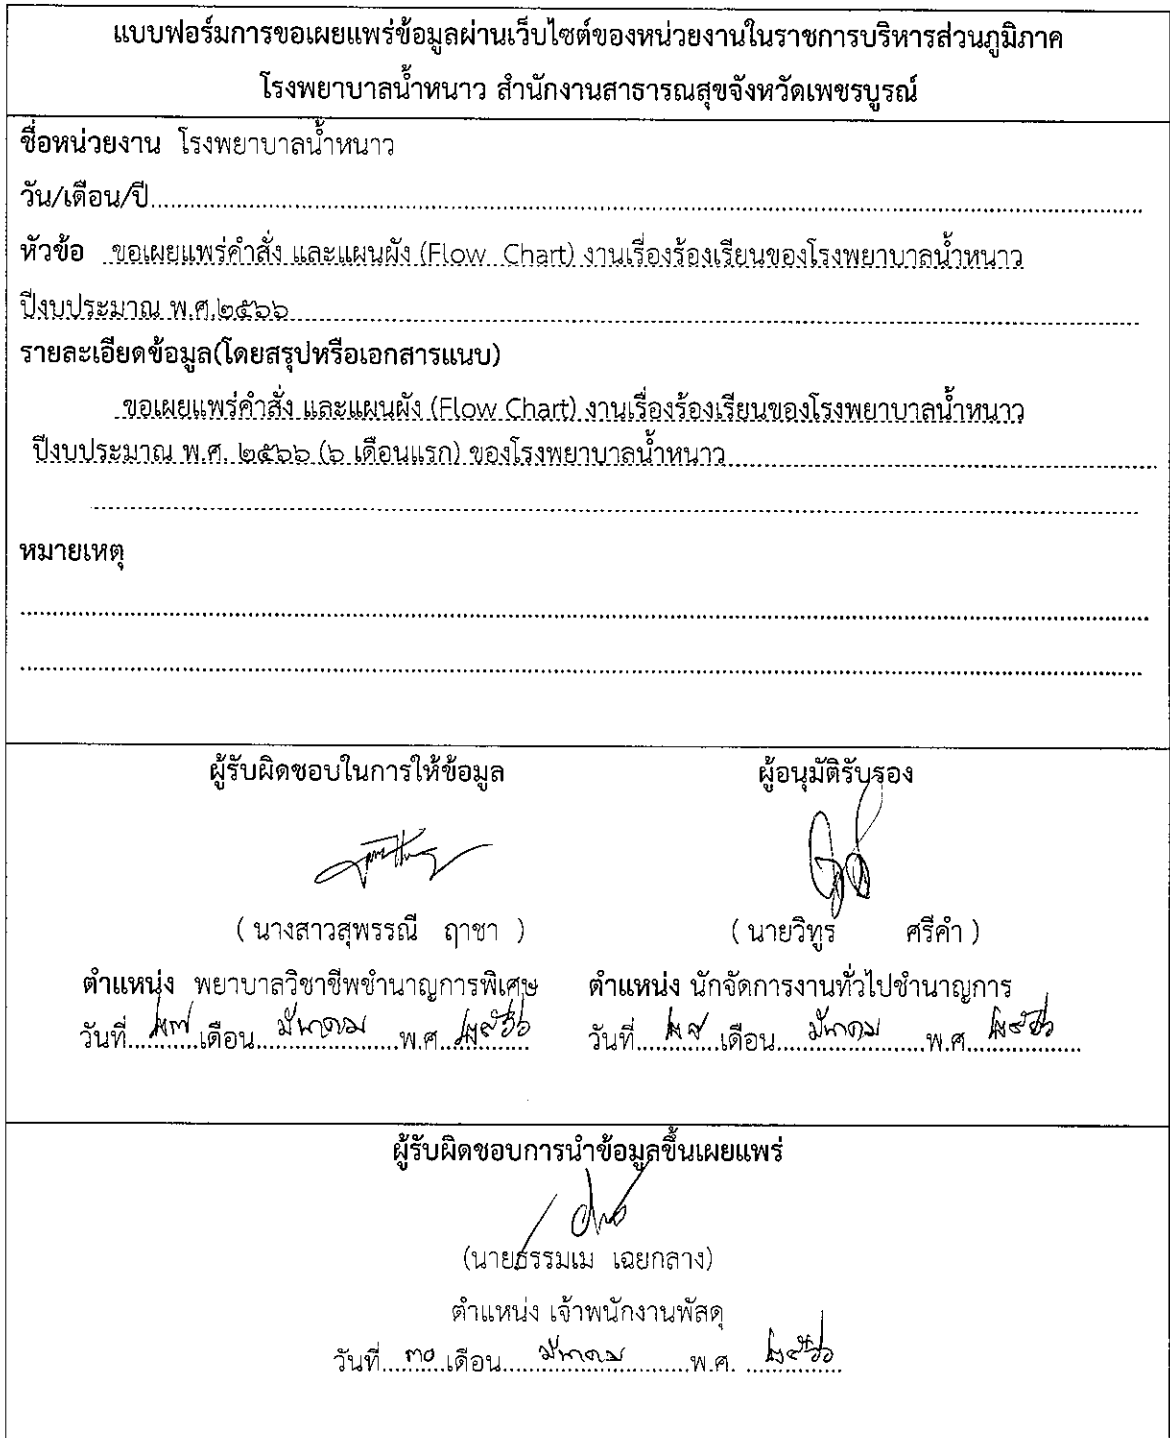 แบบฟอร์มการขอเผยแพร่ข้อมูลผ่านเว็บไซต์ของหน่วยงานในราชการบริหารส่วนภูมิภาค
โรงพยาบาลน้ำหนาว สำนักงานสาธารณสุขจังหวัดเพชรบูรณ์
ชื่อหน่วยงาน โรงพยาบาลน้ำหนาว
วัน/เดือน/ปี
หัวข้อ ขอเผยแพร่คำสั่ง และแผนผัง (Flow Chart) งานเรื่องร้องเรียนของโรงพยาบาลน้ำหนาว
ปีงบประมาณ พ.ศ.๒๕๖๖
รายละเอียดข้อมูล(โดยสรุปหรือเอกสารแนบ)
ขอเผยแพร่คำสั่ง และแผนผัง (Flow Chart) งานเรื่องร้องเรียนของโรงพยาบาลน้ำหนาว
ปีงบประมาณ พ.ศ. ๒๕๖๖ (๖ เดือนแรก) ของโรงพยาบาลน้ำหนาว
หมายเหตุ
ผู้รับผิดชอบในการให้ข้อมูล ผู้อนุมัติรับรอง
( นางสาวสุพรรณี ฤาชา ) ( นายวิทูร ศรีคำ )
ตำแหน่ง พยาบาลวิชาชีพชำนาญการพิเศษ ตำแหน่ง นักจัดการงานทั่วไปชำนาญการ
วันที่ ๒๗ เดือน มีนาคม พ.ศ. ๒๕๖๖ วันที่ เดือน มีนาคม พ.ศ. ๒๕๖๖
ผู้รับผิดชอบการนำข้อมูลขึ้นเผยแพร่
(นายธรรมเม เฉยกลาง)
ตำแหน่ง เจ้าพนักงานพัสดุ
วันที่ ๓๐ เดือน มีนาคม พ.ศ. ๒๕๖๖